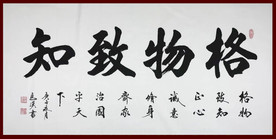 格物致知
格物
致知
正心
诚意
修身
齊家
治國
平天
下